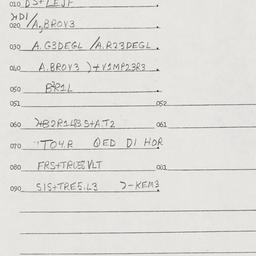 010 DS+LEJF
>IDI
020 /A,BROV3
030 A.G3DEGL /A.R23DEGL
040 A.BROV3 )+V1MP23R3
050 B2R1L
051 052
060 >+B2R1L83S+A.T2 061
070 "TO4.R QED DI HOR
080 FRS+TRUE2VLT 081
090 SIS+TRE5.L3 >-KEM3